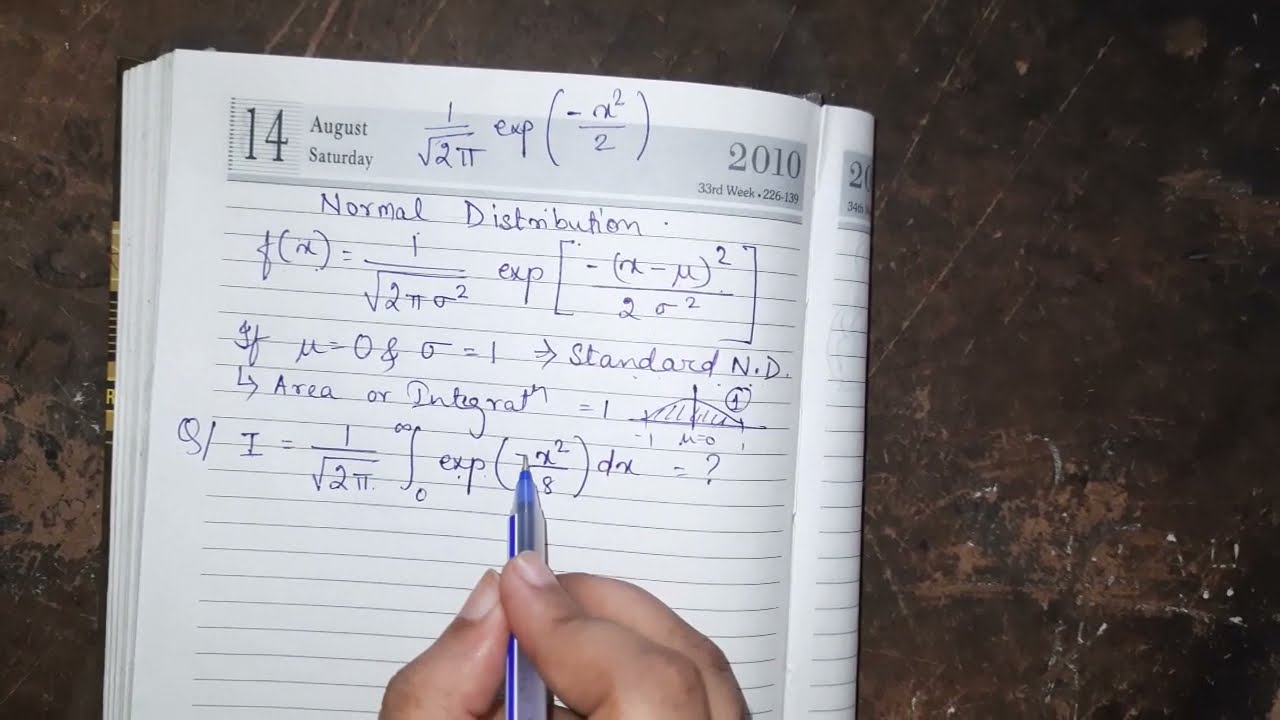 14 August Saturday
1/√2π exp(-x²/2)
2010
33rd Week • 226-139
20
34th
Normal Distribution.
f(x) = 1/√2πσ² exp[-(x-μ)²/2σ²]
If μ=0 & σ=1 ⇒ Standard N.D.
↳ Area or Integratⁿ = 1
1
-1 μ=0 1
Q/ I = 1/√2π ∫₀^∞ exp(-x²/8) dx = ?